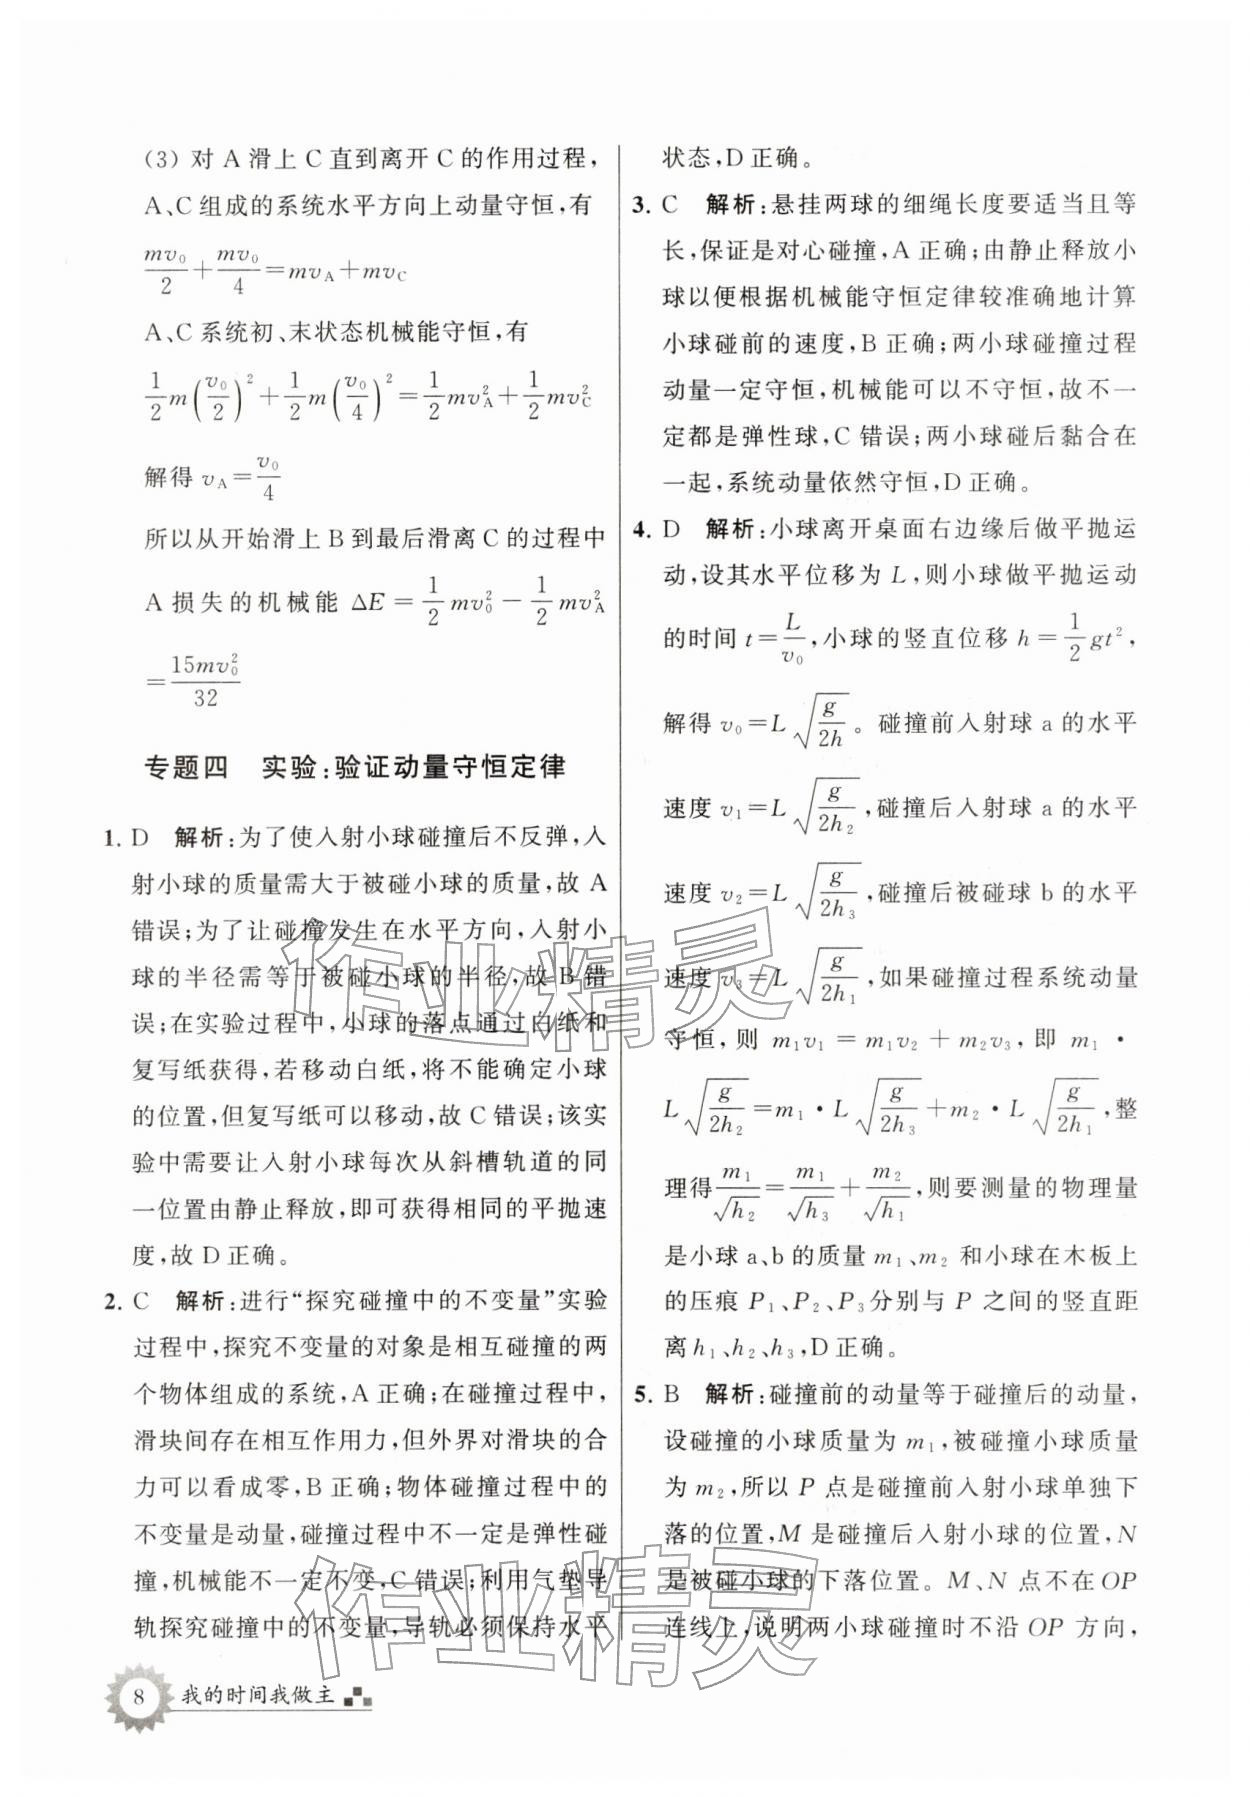 (3) 对 A 滑上 C 直到离开 C 的作用过程,
A、C 组成的系统水平方向上动量守恒,有
mv₀/2 + mv₀/4 = mv_A + mv_C
A、C 系统初、末状态机械能守恒,有
1/2 m(v₀/2)² + 1/2 m(v₀/4)² = 1/2 mv_A² + 1/2 mv_C²
解得 v_A = v₀/4
所以从开始滑上 B 到最后滑离 C 的过程中
A 损失的机械能 ΔE = 1/2 mv₀² − 1/2 mv_A²
= 15mv₀²/32
专题四 实验:验证动量守恒定律
1. D 解析:为了使入射小球碰撞后不反弹,入
射小球的质量需大于被碰小球的质量,故 A
错误;为了让碰撞发生在水平方向,入射小
球的半径需等于被碰小球的半径,故 B 错
误;在实验过程中,小球的落点通过白纸和
复写纸获得,若移动白纸,将不能确定小球
的位置,但复写纸可以移动,故 C 错误;该实
验中需要让入射小球每次从斜槽轨道的同
一位置由静止释放,即可获得相同的平抛速
度,故 D 正确。
2. C 解析:进行“探究碰撞中的不变量”实验
过程中,探究不变量的对象是相互碰撞的两
个物体组成的系统,A 正确;在碰撞过程中,
滑块间存在相互作用力,但外界对滑块的合
力可以看成零,B 正确;物体碰撞过程中的
不变量是动量,碰撞过程中不一定是弹性碰
撞,机械能不一定不变,C 错误;利用气垫导
轨探究碰撞中的不变量,导轨必须保持水平
状态,D 正确。
3. C 解析:悬挂两球的细绳长度要适当且等
长,保证是对心碰撞,A 正确;由静止释放小
球以便根据机械能守恒定律较准确地计算
小球碰前的速度,B 正确;两小球碰撞过程
动量一定守恒,机械能可以不守恒,故不一
定都是弹性球,C 错误;两小球碰后黏合在
一起,系统动量依然守恒,D 正确。
4. D 解析:小球离开桌面右边缘后做平抛运
动,设其水平位移为 L,则小球做平抛运动
的时间 t = L/v₀,小球的竖直位移 h = 1/2 gt²,
解得 v₀ = L√(g/2h)。碰撞前入射球 a 的水平
速度 v₁ = L√(g/2h₂),碰撞后入射球 a 的水平
速度 v₂ = L√(g/2h₃),碰撞后被碰球 b 的水平
速度 v₃ = L√(g/2h₁),如果碰撞过程系统动量
守恒,则 m₁v₁ = m₁v₂ + m₂v₃,即 m₁ ·
L√(g/2h₂) = m₁ · L√(g/2h₃) + m₂ · L√(g/2h₁),整
理得 m₁/√h₂ = m₁/√h₃ + m₂/√h₁,则要测量的物理量
是小球 a、b 的质量 m₁、m₂ 和小球在木板上
的压痕 P₁、P₂、P₃ 分别与 P 之间的竖直距
离 h₁、h₂、h₃,D 正确。
5. B 解析:碰撞前的动量等于碰撞后的动量,
设碰撞的小球质量为 m₁,被碰撞小球质量
为 m₂,所以 P 点是碰撞前入射小球单独下
落的位置,M 是碰撞后入射小球的位置,N
是被碰小球的下落位置。M、N 点不在 OP
连线上,说明两小球碰撞时不沿 OP 方向,
作业精灵
作业精灵
8 我的时间我做主